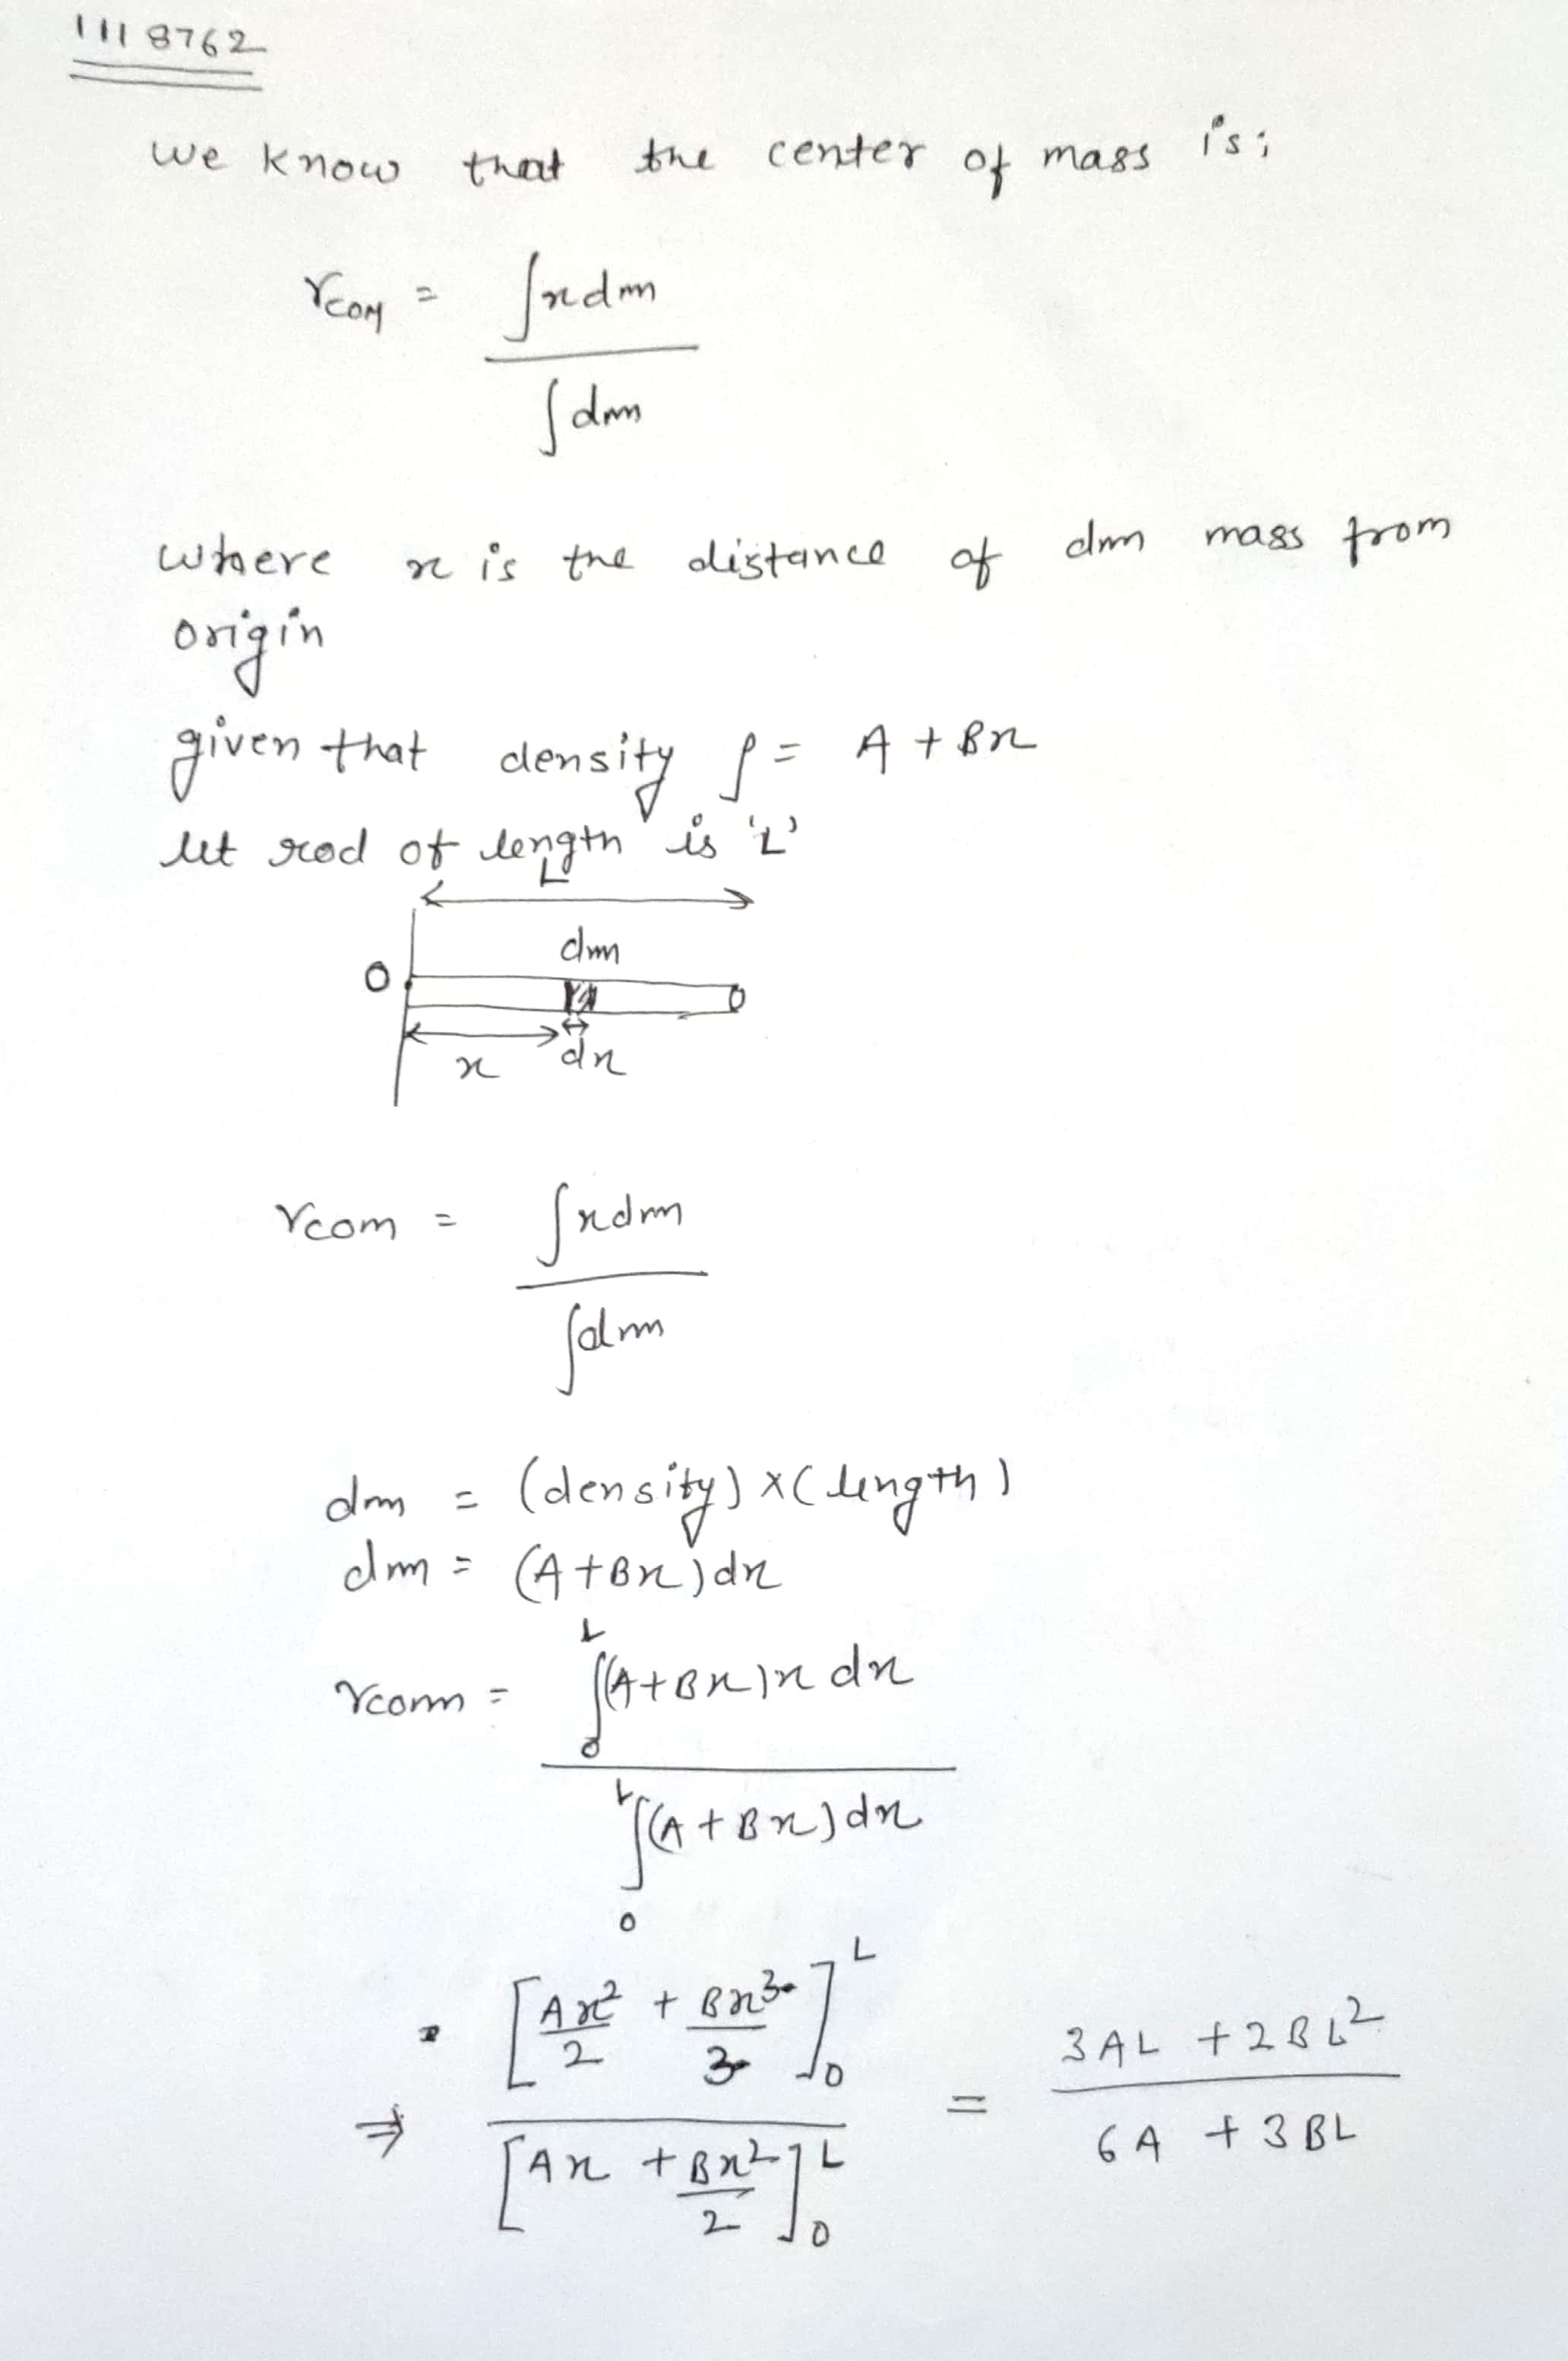 1118762
We know that the center of mass is;
rCOM = ∫xdm
∫dm
where x is the distance of dm mass from
origin
given that density ρ = A + Bx
let rod of length is 'L'
L
dm
O
x dx
rcom = ∫xdm
∫dm
dm = (density) x (length)
dm = (A+Bx)dx
rcom = ∫₀ᴸ(A+Bx)x dx
∫₀ᴸ(A+Bx)dx
⇒ [Ax²/2 + Bx³/3]₀ᴸ = 3AL + 2BL²
[Ax + Bx²/2]₀ᴸ 6A + 3BL